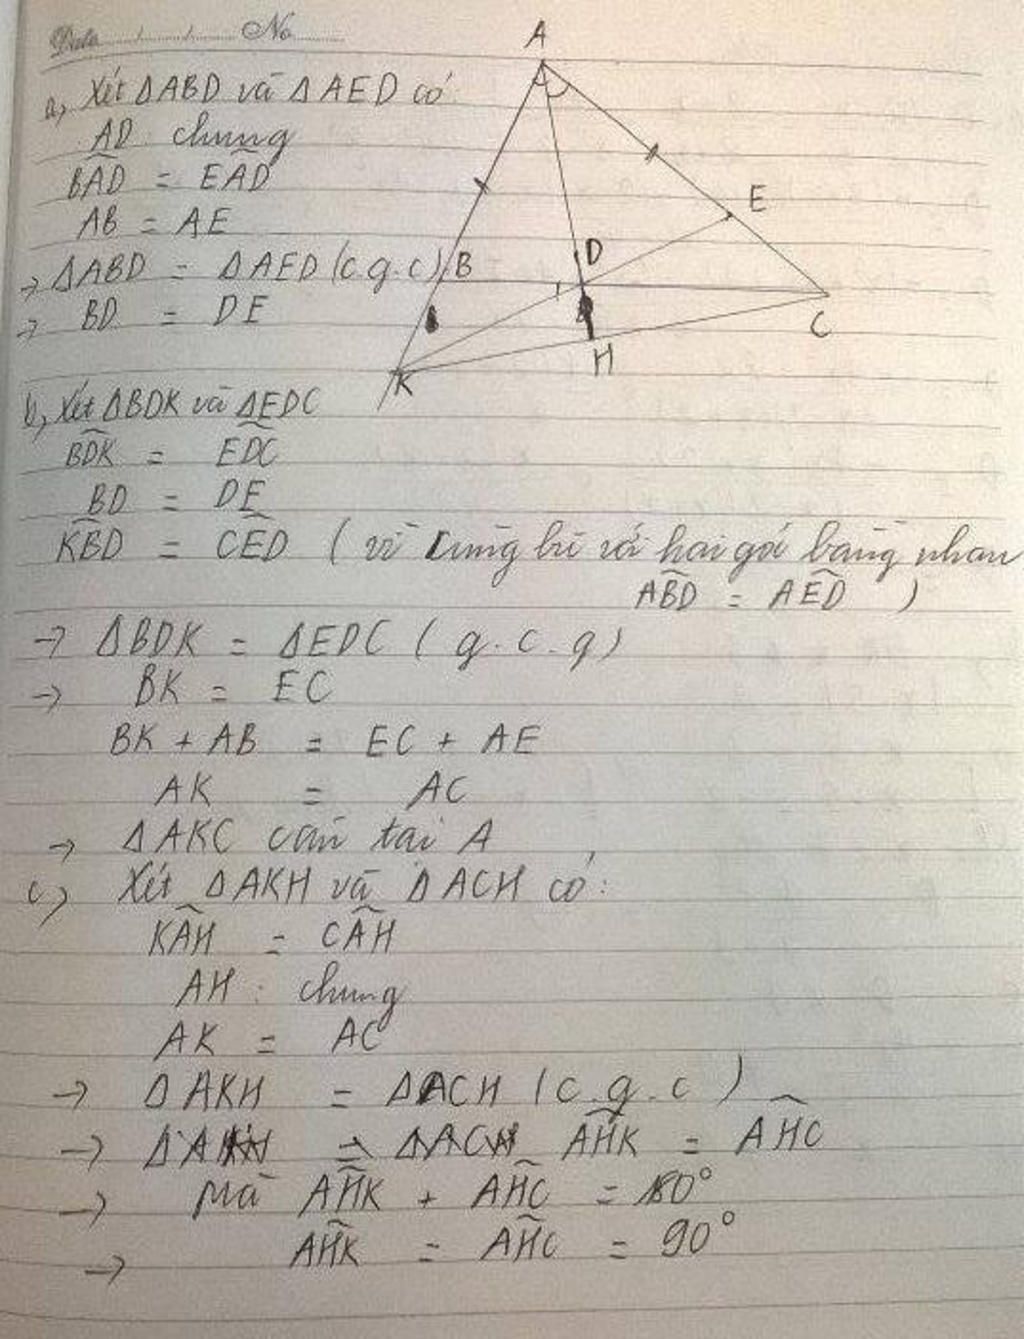 Date / / No
A
a, Xét ΔABD và ΔAED có
AD chung
BAD = EAD
AB = AE
E
→ ΔABD = ΔAED (c.g.c)
B
D
→ BD = DE
C
H
K
b, Xét ΔBDK và ΔEDC
BDK = EDC
BD = DE
KBD = CED ( vì cùng bù với hai góc bằng nhau
ABD = AED )
→ ΔBDK = ΔEDC ( g.c.g)
→ BK = EC
BK + AB = EC + AE
AK = AC
→ ΔAKC cân tại A
c, Xét ΔAKH và ΔACH có:
KAH = CAH
AH : chung
AK = AC
→ ΔAKH = ΔACH (c.g.c)
→ AHK = AHC
→ Mà AHK + AHC = 180°
→ AHK = AHC = 90°